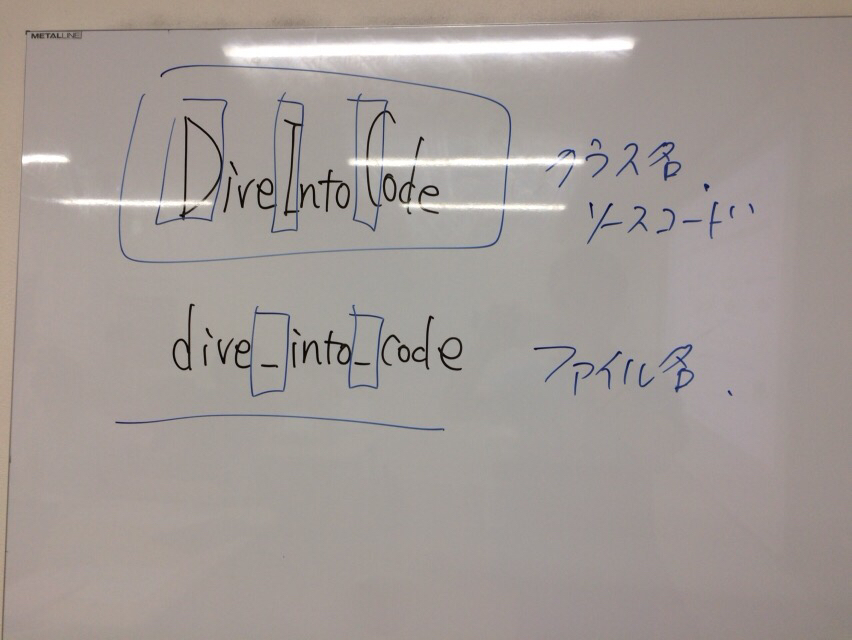 METALLINE
DiveIntoCode
クラス名.
ソースコード
dive_into_code
ファイル名.